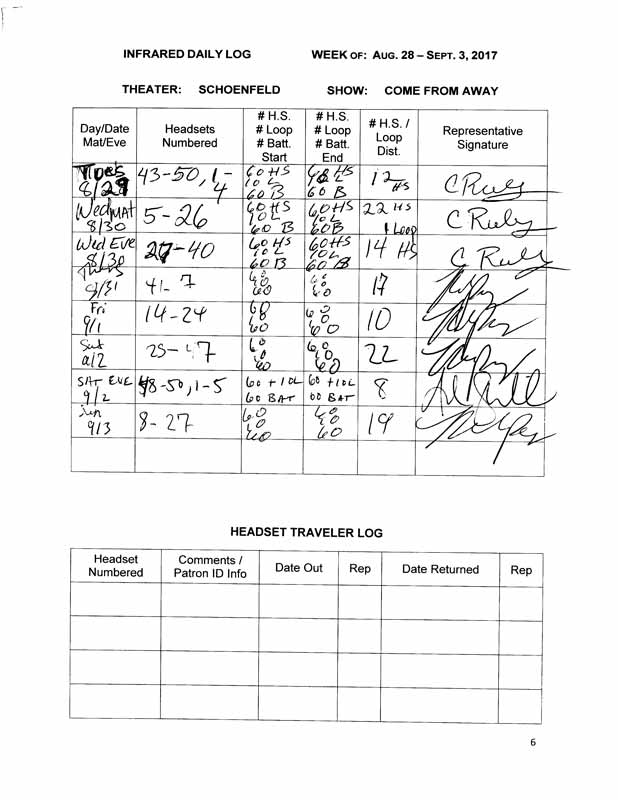 INFRARED DAILY LOG WEEK OF: AUG. 28 – SEPT. 3, 2017
THEATER: SCHOENFELD SHOW: COME FROM AWAY
Day/Date Mat/Eve
Headsets Numbered
# H.S. # Loop # Batt. Start
# H.S. # Loop # Batt. End
# H.S. / Loop Dist.
Representative Signature
Tues 8/29 43-50, 1-4 60 HS 10 L 60 B 60 B 12 HS C Ruly
Wed MAT 8/30 5-26 60 HS 10L 60 B 60HS 10L 60B 22 HS 1 Loop C Ruly
Wed EVE 8/30 27-40 60 HS 10L 60B 60HS 10L 60 B 14 HS C Ruly
Thurs 8/31 41-7 60 60 17
Fri 9/1 14-24 60 60 10
Sat 9/2 25-47 60 60 22
SAT EVE 9/2 48-50, 1-5 60 + 10L 60 BAT 60 +10L 60 BAT 8
Sun 9/3 8-27 60 60 60 60 19
HEADSET TRAVELER LOG
Headset Numbered
Comments / Patron ID Info
Date Out
Rep
Date Returned
Rep
6